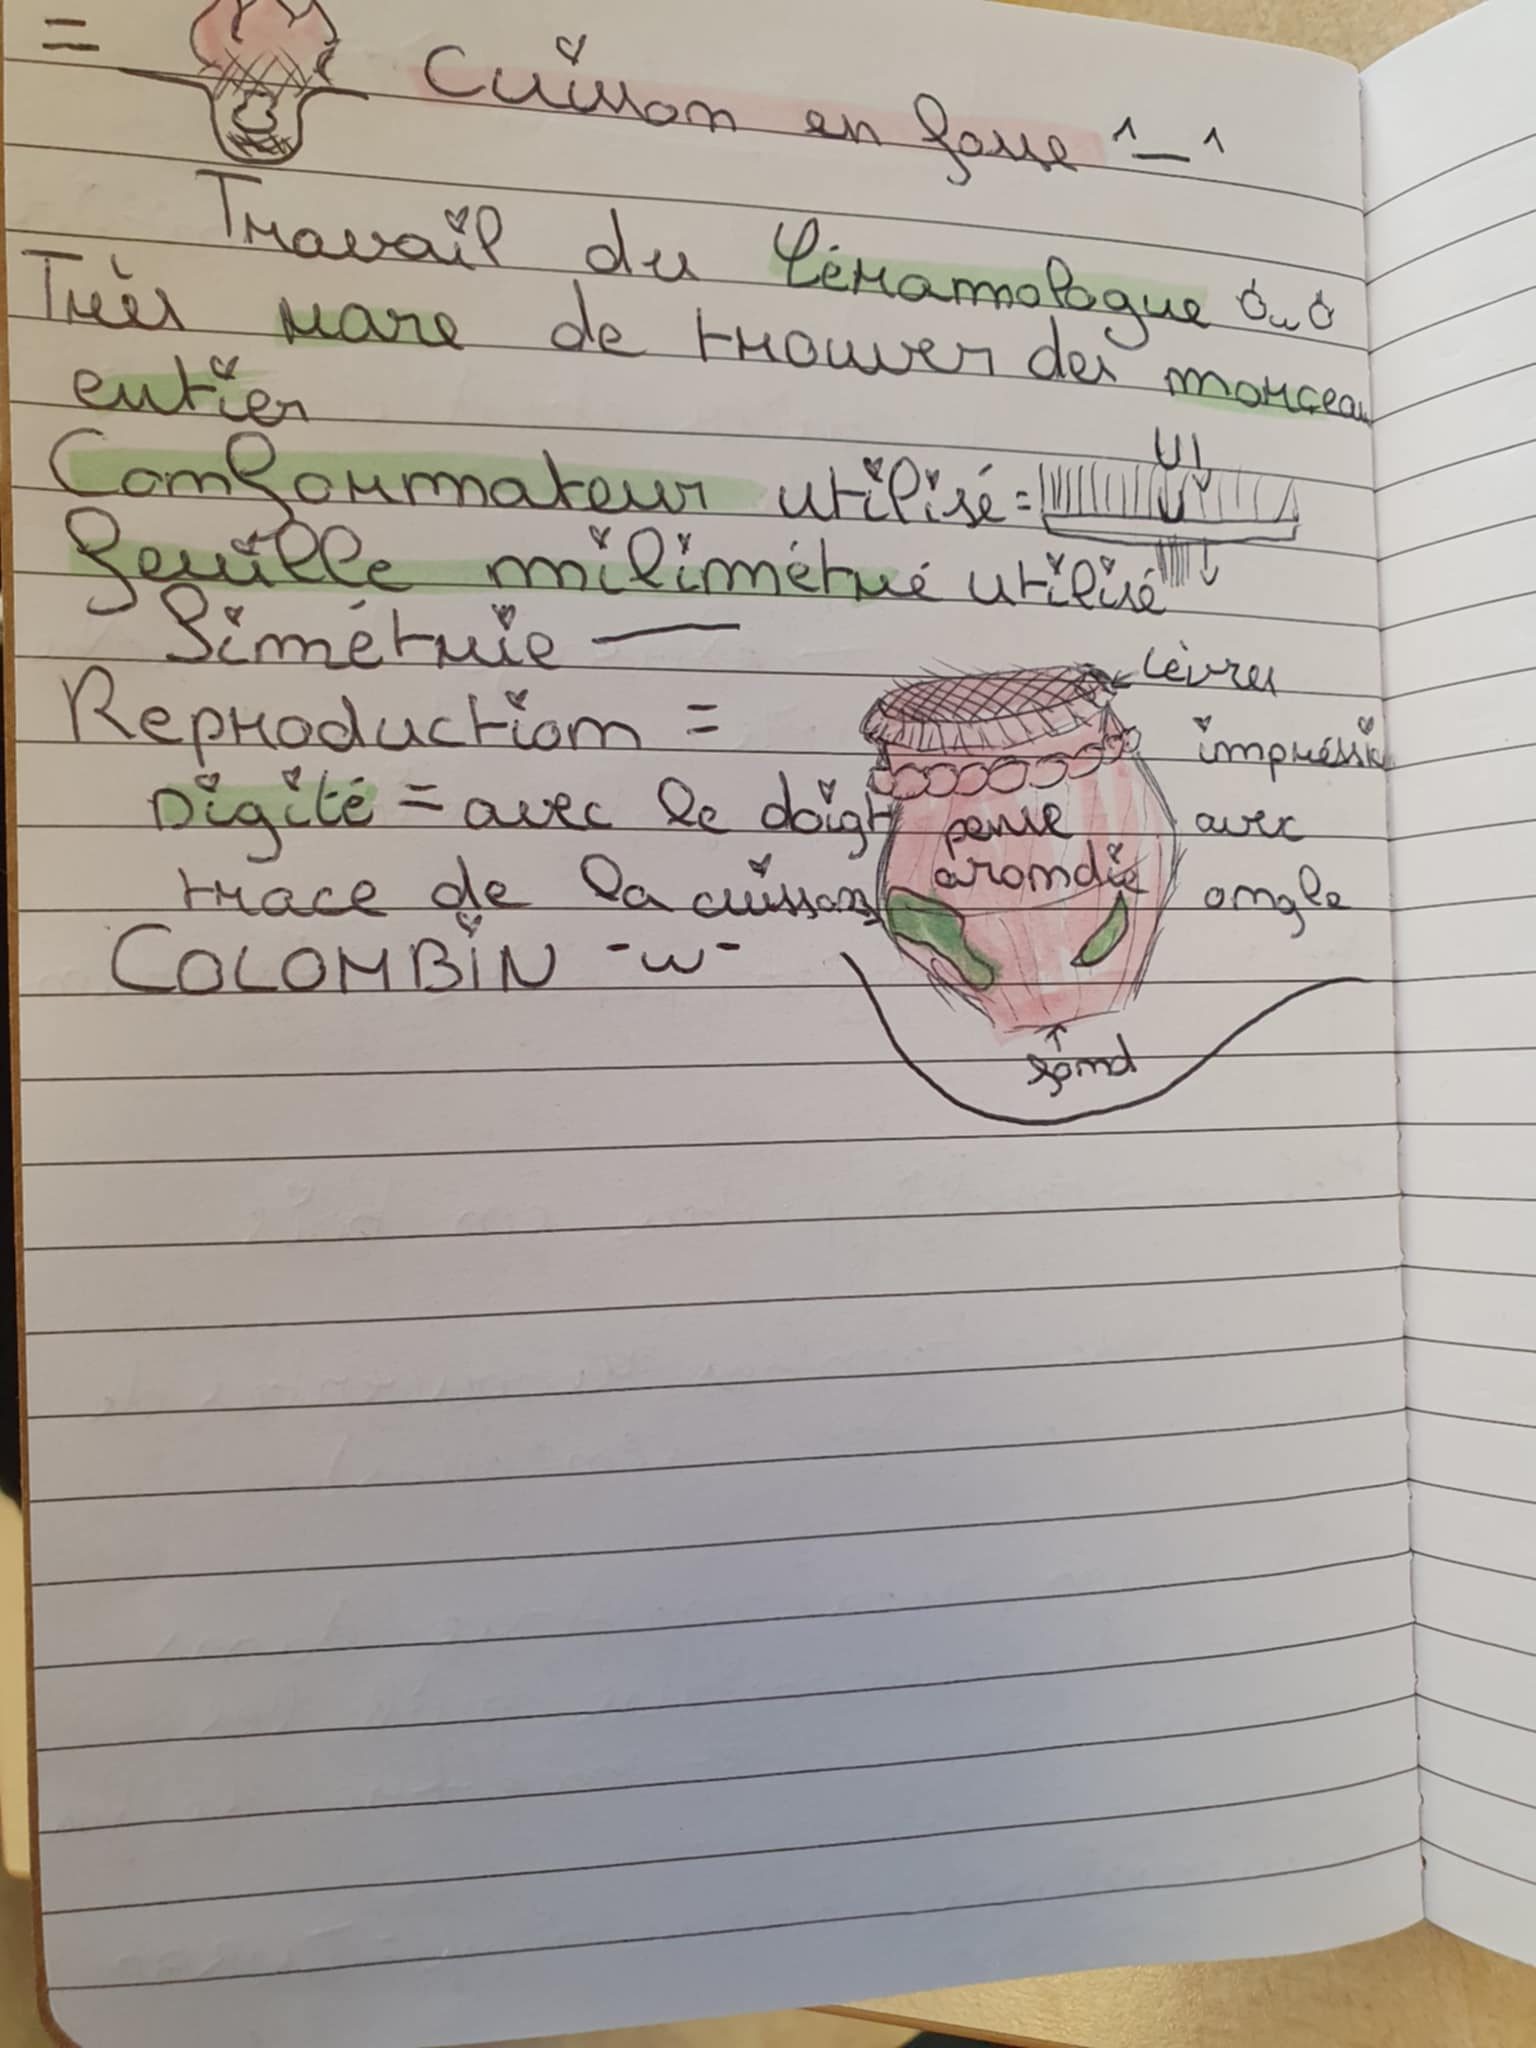 = Cuisson en fosse ^_^
Travail du Céramologue Ò_Ó
Très rare de trouver des morceau
entier
Conformateur utilisé =
feuille milimétré utilisé
Simétrie —
Reproduction =
Digité = avec le doigt
trace de la cuisson
COLOMBIN -w-
lèvres
impréssio
avec
ongle
panse
arondie
fond